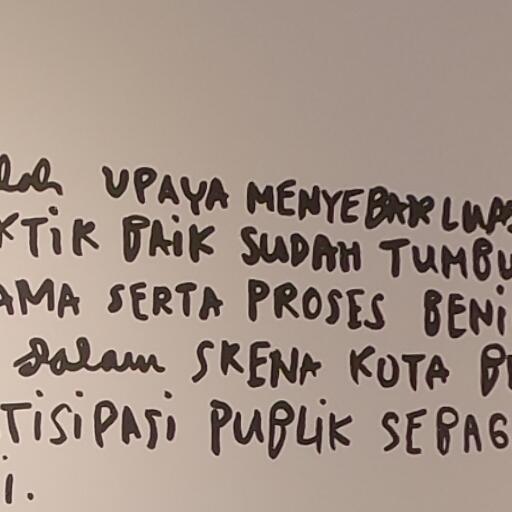 UPAYA MENYEBARLUAS
KTIK BAIK SUDAH TUMBU
AMA SERTA PROSES BENI
dalam SKENA KOTA BE
TISIPASI PUBLIK SEBAG
i.